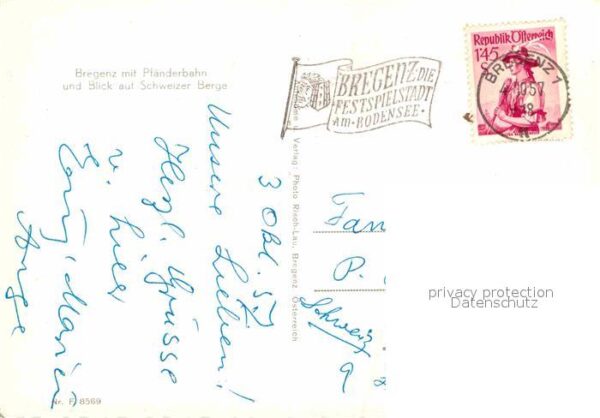 Bregenz mit Pfänderbahn
und Blick auf Schweizer Berge
BREGENZ·DIE
FESTSPIELSTADT
AM·BODENSEE·
Republik Österreich
1'45
BREGENZ 1
4.10.57
-18
3 Okt. 57
Unsere Lieben!
Herzl. Grüsse
v. hier
Verlag: Photo Risch-Lau, Bregenz, Österreich
Fam
P.
Schweiz
privacy protection
Datenschutz
Nr. F 8569